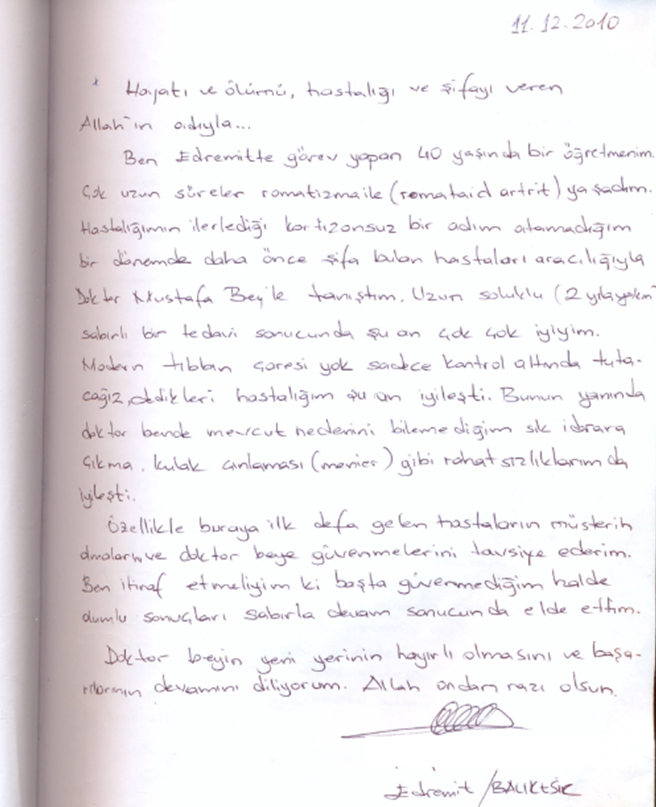 11.12.2010
* Hayatı ve ölümü, hastalığı ve şifayı veren
Allah'ın adıyla...
Ben Edremitte görev yapan 40 yaşında bir öğretmenim.
Çok uzun süreler romatizmaile (romataid artrit) yaşadım.
Hastalığımın ilerlediği kortizonsuz bir adım atamadığım
bir dönemde daha önce şifa bulan hastaları aracılığıyla
Doktor Mustafa Bey'le tanıştım. Uzun soluklu (2 yıla yakın)
sabırlı bir tedavi sonucunda şu an çok çok iyiyim.
Modern tıbbın çaresi yok sadece kontrol altında tuta-
cağız, dedikleri hastalığım şu an iyileşti. Bunun yanında
doktor bende mevcut nedenini bilemediğim sık idrara
çıkma, kulak çınlaması (menier) gibi rahatsızlıklarım da
iyileşti.
Özellikle buraya ilk defa gelen hastaların müsterih
olmalarını ve doktor beye güvenmelerini tavsiye ederim.
Ben itiraf etmeliyim ki başta güvenmediğim halde
olumlu sonuçları sabırla devam sonucunda elde ettim.
Doktor beyin yeni yerinin hayırlı olmasını ve başa-
rılarının devamını diliyorum. Allah ondan razı olsun.
Edremit /BALIKESİR